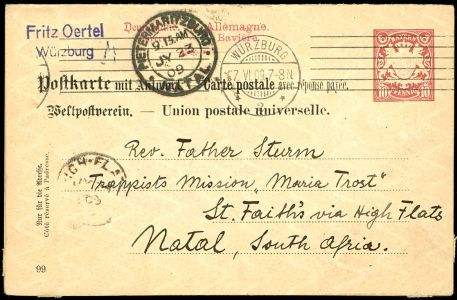 Fritz Oertel
Würzburg
Deutschland. Allemagne.
Bavière
PIETERMARITZBURG
9.15 AM
JN 23
09
NATAL
WÜRZBURG
7.VI.09.7-8N
BAYERN
10 PFENNIG 10
Postkarte mit Antwort. Carte postale avec réponse payée.
Weltpostverein. — Union postale universelle.
Rev. Father Sturm
Trappists Mission „Maria Trost"
St. Faith's via High Flats
Natal, South Africa.
HIGH-FLA
Nur für die Adresse.
Côté réservé à l'adresse.
99